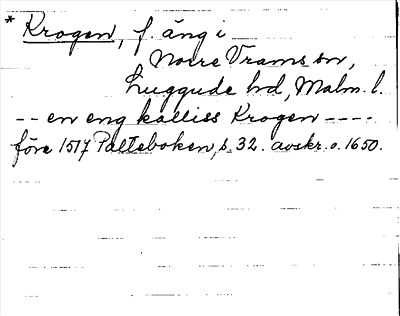 * Krogen, f. äng i
Norre Vrams sn,
Luggude hd, Malm. l.
-- en eng kalliss Krogen ----
före 1517 Palteboken, s. 32. avskr. o. 1650.